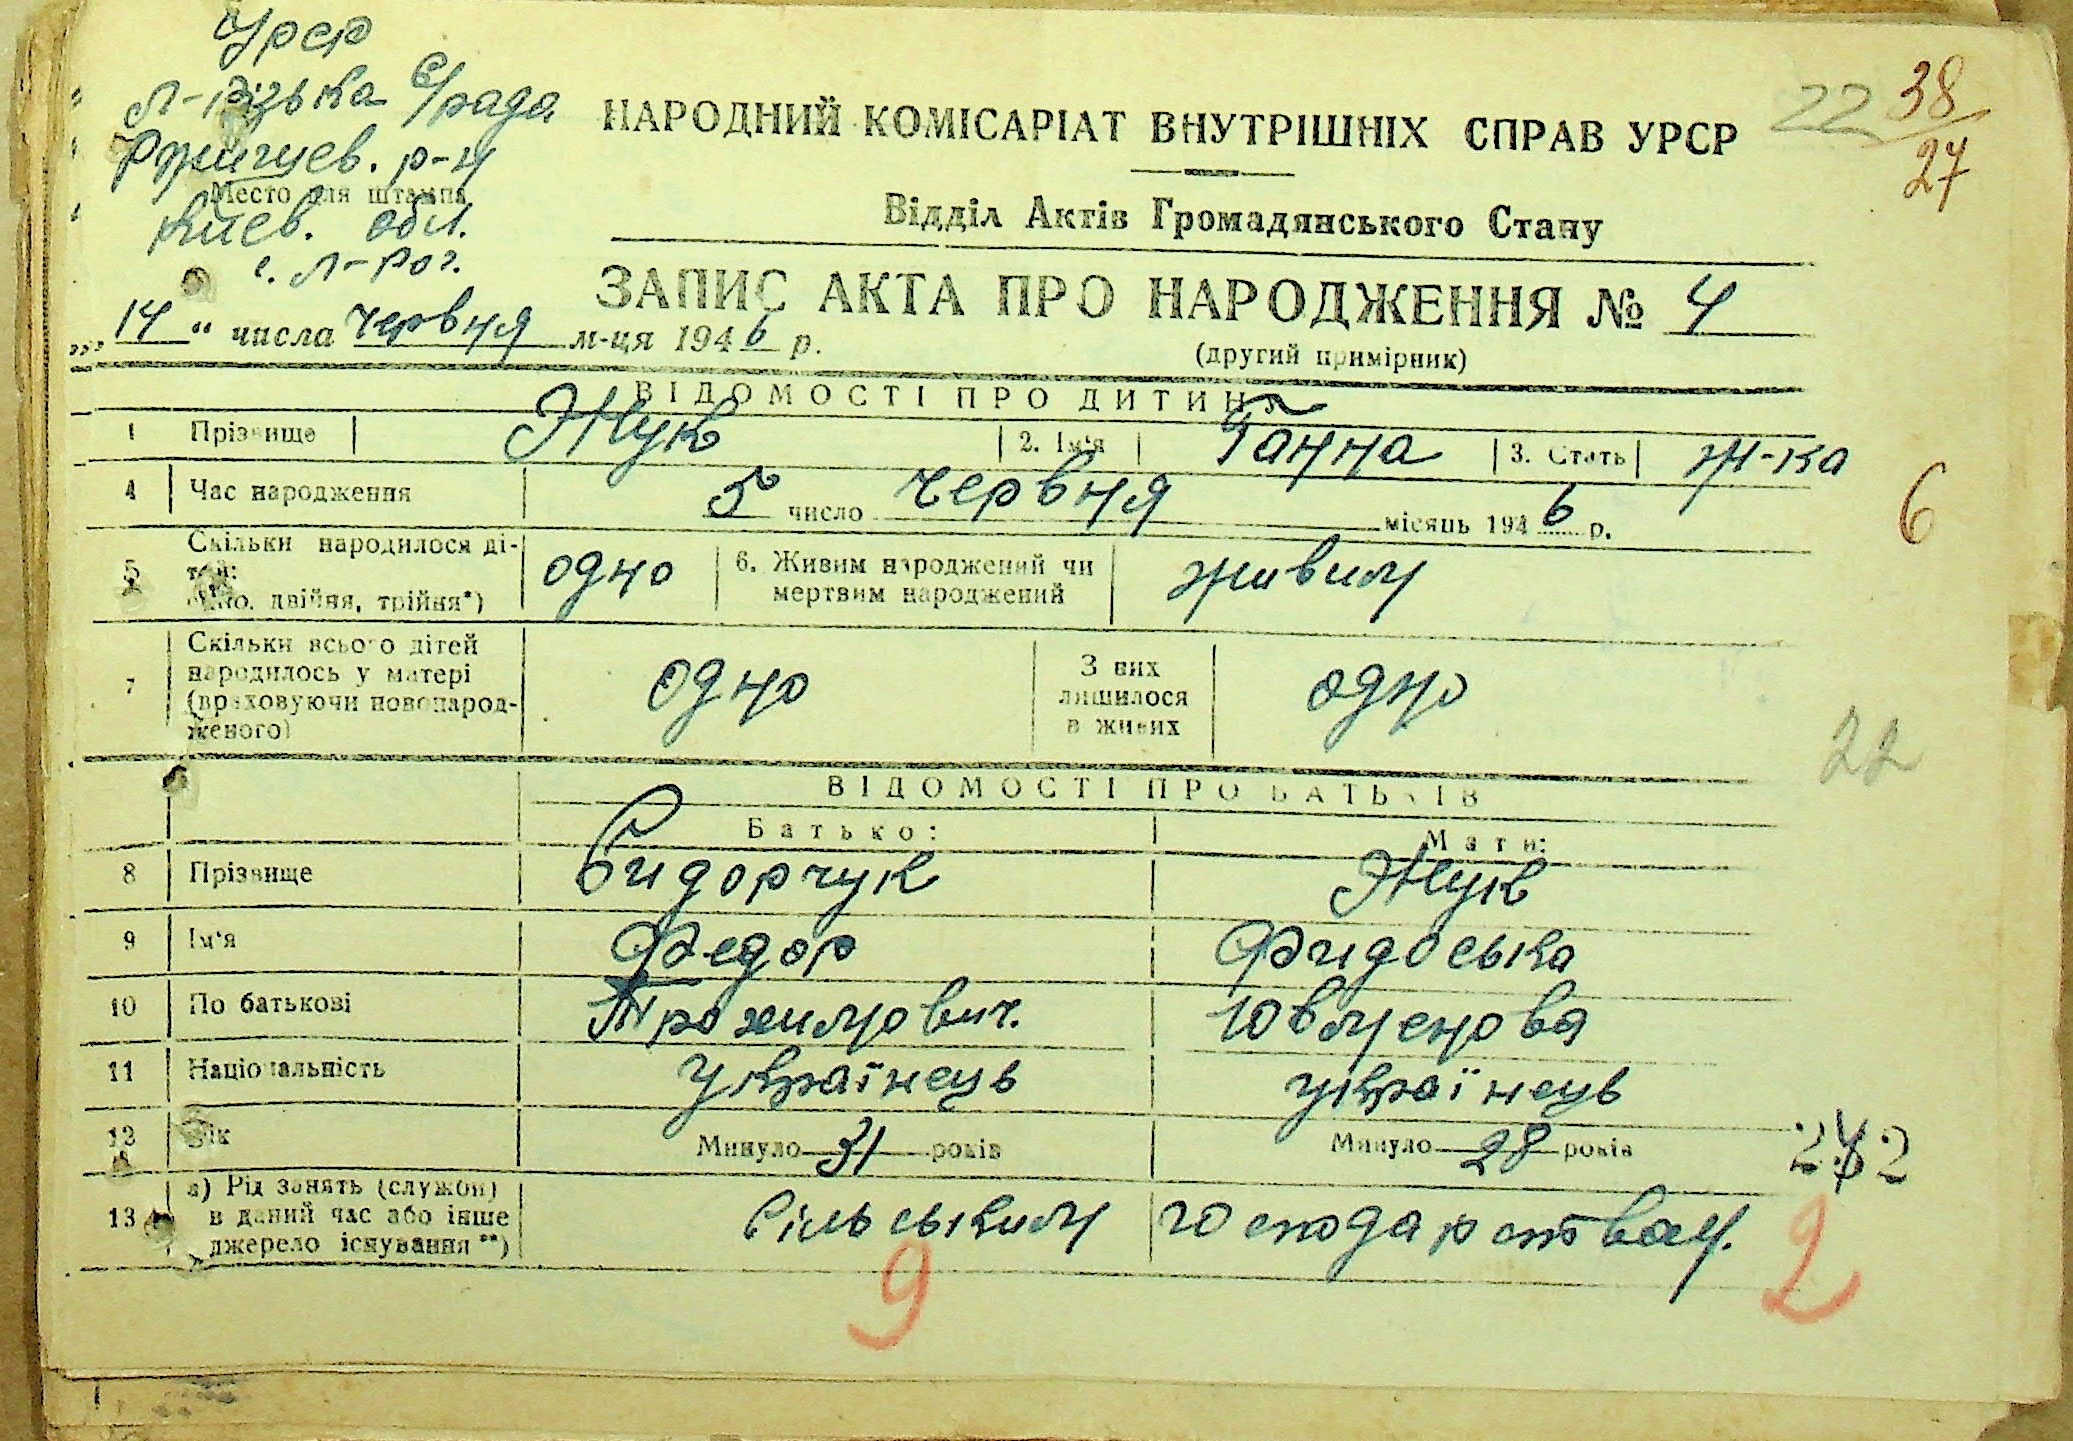 УРСР
Л-Різька С/рада
Ржищев. р-н
Место для штампа
Киев. обл.
с. Л-Рог.
22 38
27
НАРОДНИЙ КОМІСАРІАТ ВНУТРІШНІХ СПРАВ УРСР
Відділ Актів Громадянського Стану
ЗАПИС АКТА ПРО НАРОДЖЕННЯ № 4
(другий примірник)
„14“ числа червня м-ця 1946 р.
ВІДОМОСТІ ПРО ДИТИНУ
1 Прізвище Жук 2. Ім'я Ганна 3. Стать ж-ка
4 Час народження 5 число червня місяць 1946 р.
6
5 Скільки народилося ді-
тей: одно 6. Живим народжений чи живим
двійня, трійня*) мертвим народжений
7 Скільки всього дітей
народилось у матері
(враховуючи новонарод-
женого) одно З них
лишилося
в живих одно
22
ВІДОМОСТІ ПРО БАТЬКІВ
Батько: Мати:
8 Прізвище Сидорчук Жук
9 Ім'я Федор Фидоська
10 По батькові Трохимович. Ювменова
11 Національність українець українець
12 Вік Минуло 31 років Минуло 28 років
13 а) Рід занять (служби)
в даний час або інше
джерело існування **) Сільським господарством.
9 2